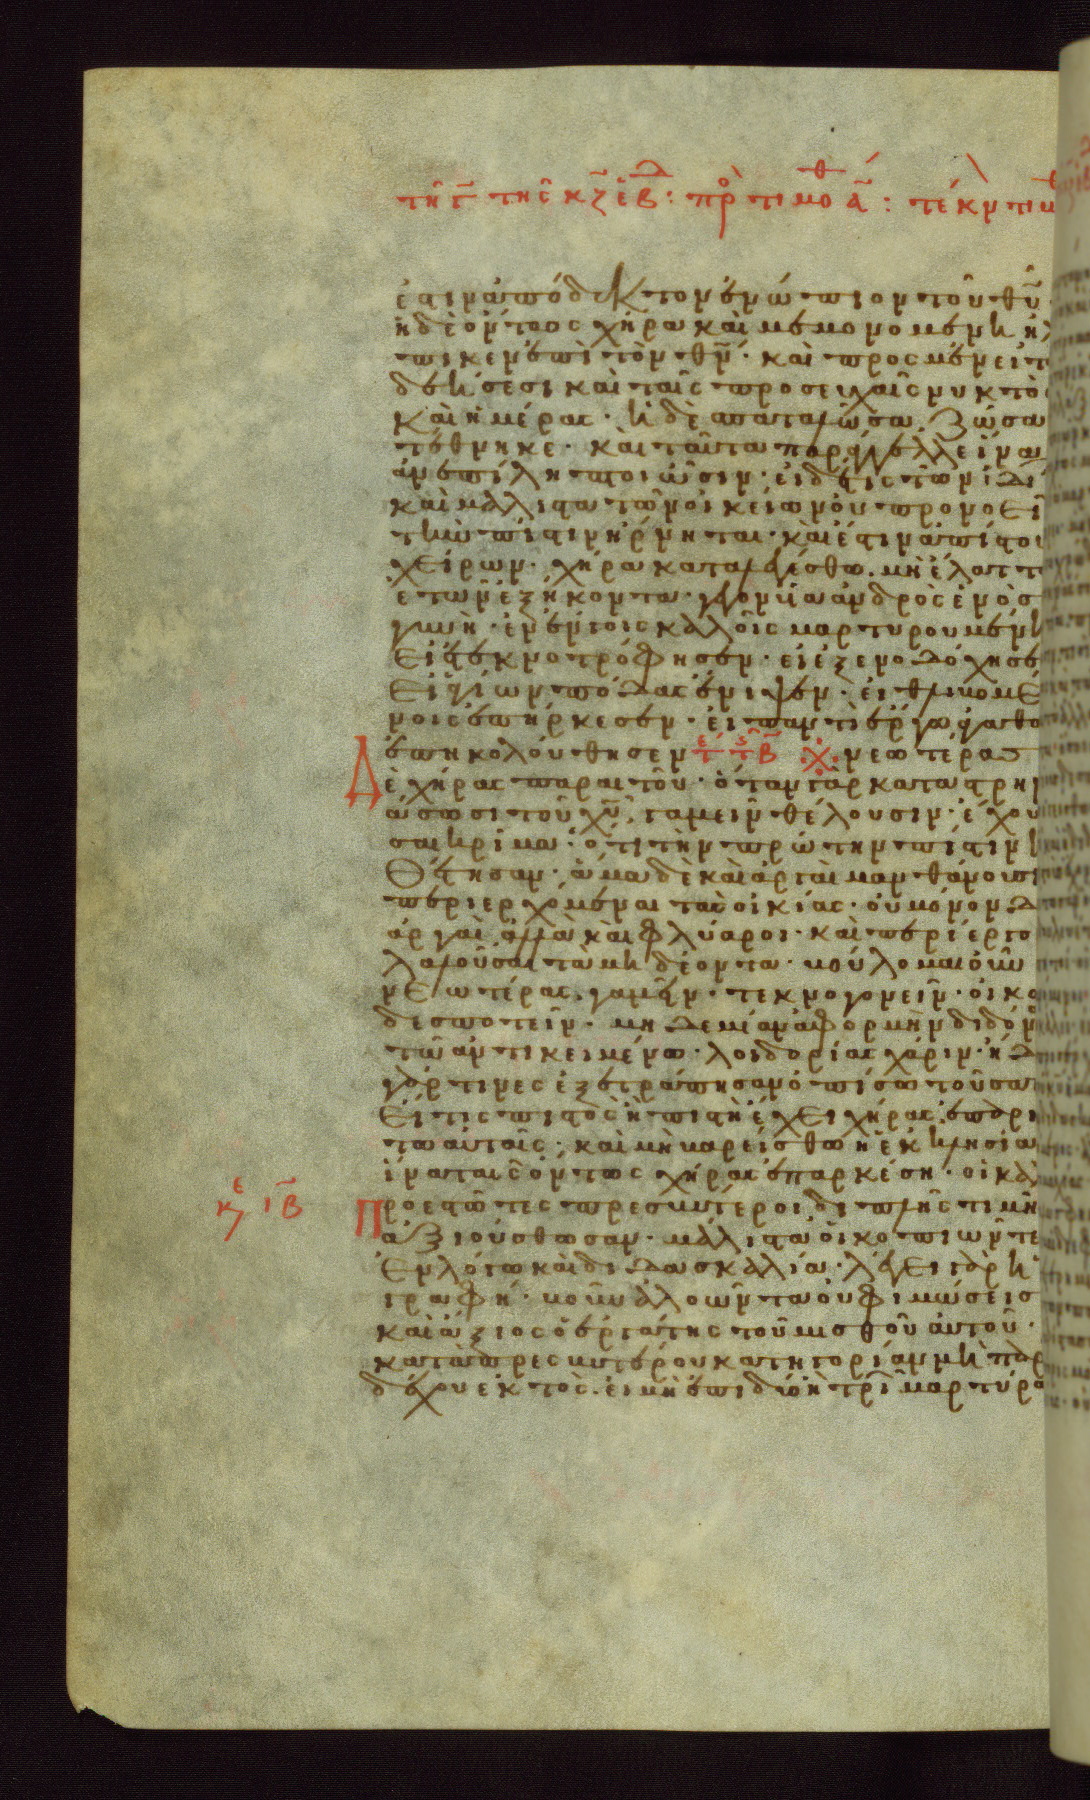 τῆ γ̅ τῆς κζ ἑβδ: πρὸ τιμοθ α̅: τέκν τιμ
ἐστιν ἀπόδεκτον ἐνώπιον τοῦ θυ̅·
ἡ δὲ ὄντως χήρα καὶ μεμονομένη ἤλ
πικεν ἐπὶ τὸν θν̅· καὶ προσμένει τ
δεήσεσι καὶ ταῖς προσευχαῖς νυκτὸ
καὶ ἡμέρας· ἡ δὲ σπαταλῶσα ζῶσα
τέθνηκε· καὶ ταῦτα παράγγελλε ἵνα
ἀνεπίληπτοι ὦσιν· εἰ δέ τις τῶν ἰδί
καὶ μάλιστα τῶν οἰκείων οὐ προνοεῖ
τὴν πίστιν ἤρνηται· καὶ ἔστιν ἀπίστου
χείρων· χήρα καταλεγέσθω. μὴ ἔλαττ
ετῶν ἑξήκοντα· γεγονυῖα ἀνδρὸς ἑνὸσ
γυνὴ· ἐν ἔργοις καλοῖς μαρτυρουμένη
εἰ ἐτεκνοτρόφησεν· εἰ ἐξενοδόχησε
εἰ ἁγίων πόδας ἔνιψεν· εἰ θλιβομέ
νοις ἐπήρκεσεν· εἰ παντὶ ἔργω ἀγαθῶ
ἐπηκολούθησεν νεωτέρας
Δὲ χήρας παραιτοῦ· ὅταν γὰρ καταστρηνι
άσωσι τοῦ χυ̅, γαμεῖν θέλουσιν· ἔχου
σαι κρίμα· ὅτι τὴν πρώτην πίστιν ἠ
θέτησαν· ἅμα δὲ καὶ ἀργαὶ μανθάνουσι
περιερχόμεναι τὰς οἰκίας· οὐ μόνον δ
ἀργαὶ ἀλλὰ καὶ φλύαροι· καὶ περίεργο
λαλοῦσαι τὰ μὴ δέοντα· βούλομαι οὖν
νεωτέρας γαμεῖν· τεκνογονεῖν· οἰκο
δεσποτεῖν· μηδεμίαν ἀφορμὴν διδόν
τῶ ἀντικειμένω· λοιδορίας χάριν· ἤδ
γάρ τινες ἐξετράπησαν ὀπίσω τοῦ σατ
Εἴ τις πιστὸς ἢ πιστὴ ἔχει χήρας ἐπαρκεί
τω αὐταῖς· καὶ μὴ βαρείσθω ἡ ἐκκλησία
ἵνα ταῖς ὄντως χήραις ἐπαρκέση· οἱ καλ
κε ιβ Προεστῶτες πρεσβύτεροι διπλῆς τιμῆ
ἀξιούσθωσαν· μάλιστα οἱ κοπιῶντε
ἐν λόγω καὶ διδασκαλία· λέγει γὰρ ἡ
γραφή· βοῦν ἀλοῶντα οὐ φιμώσεις
καὶ ἄξιος ὁ ἐργάτης τοῦ μισθοῦ αὐτοῦ·
κατὰ πρεσβυτέρου κατηγορίαν μὴ παρ
δέχου ἐκτὸς εἰ μὴ ἐπὶ δύο ἢ τριῶν μαρτύρω